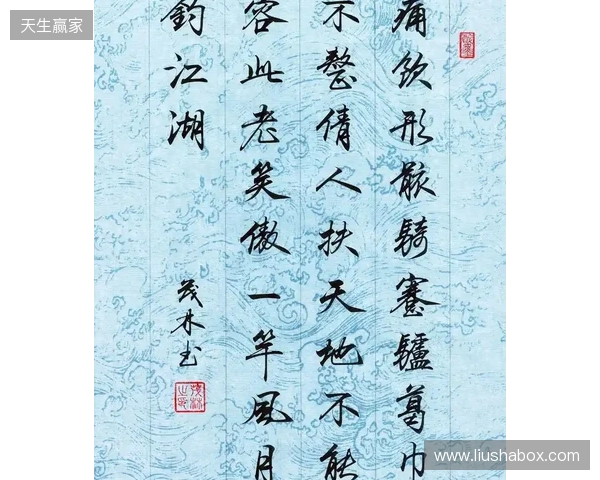 天生赢家
痛飲形骸騎蹇驢葛巾
不整倩人扶天地不能
容此老笑傲一竿風月
釣江湖
茂林书
www.liushabox.com